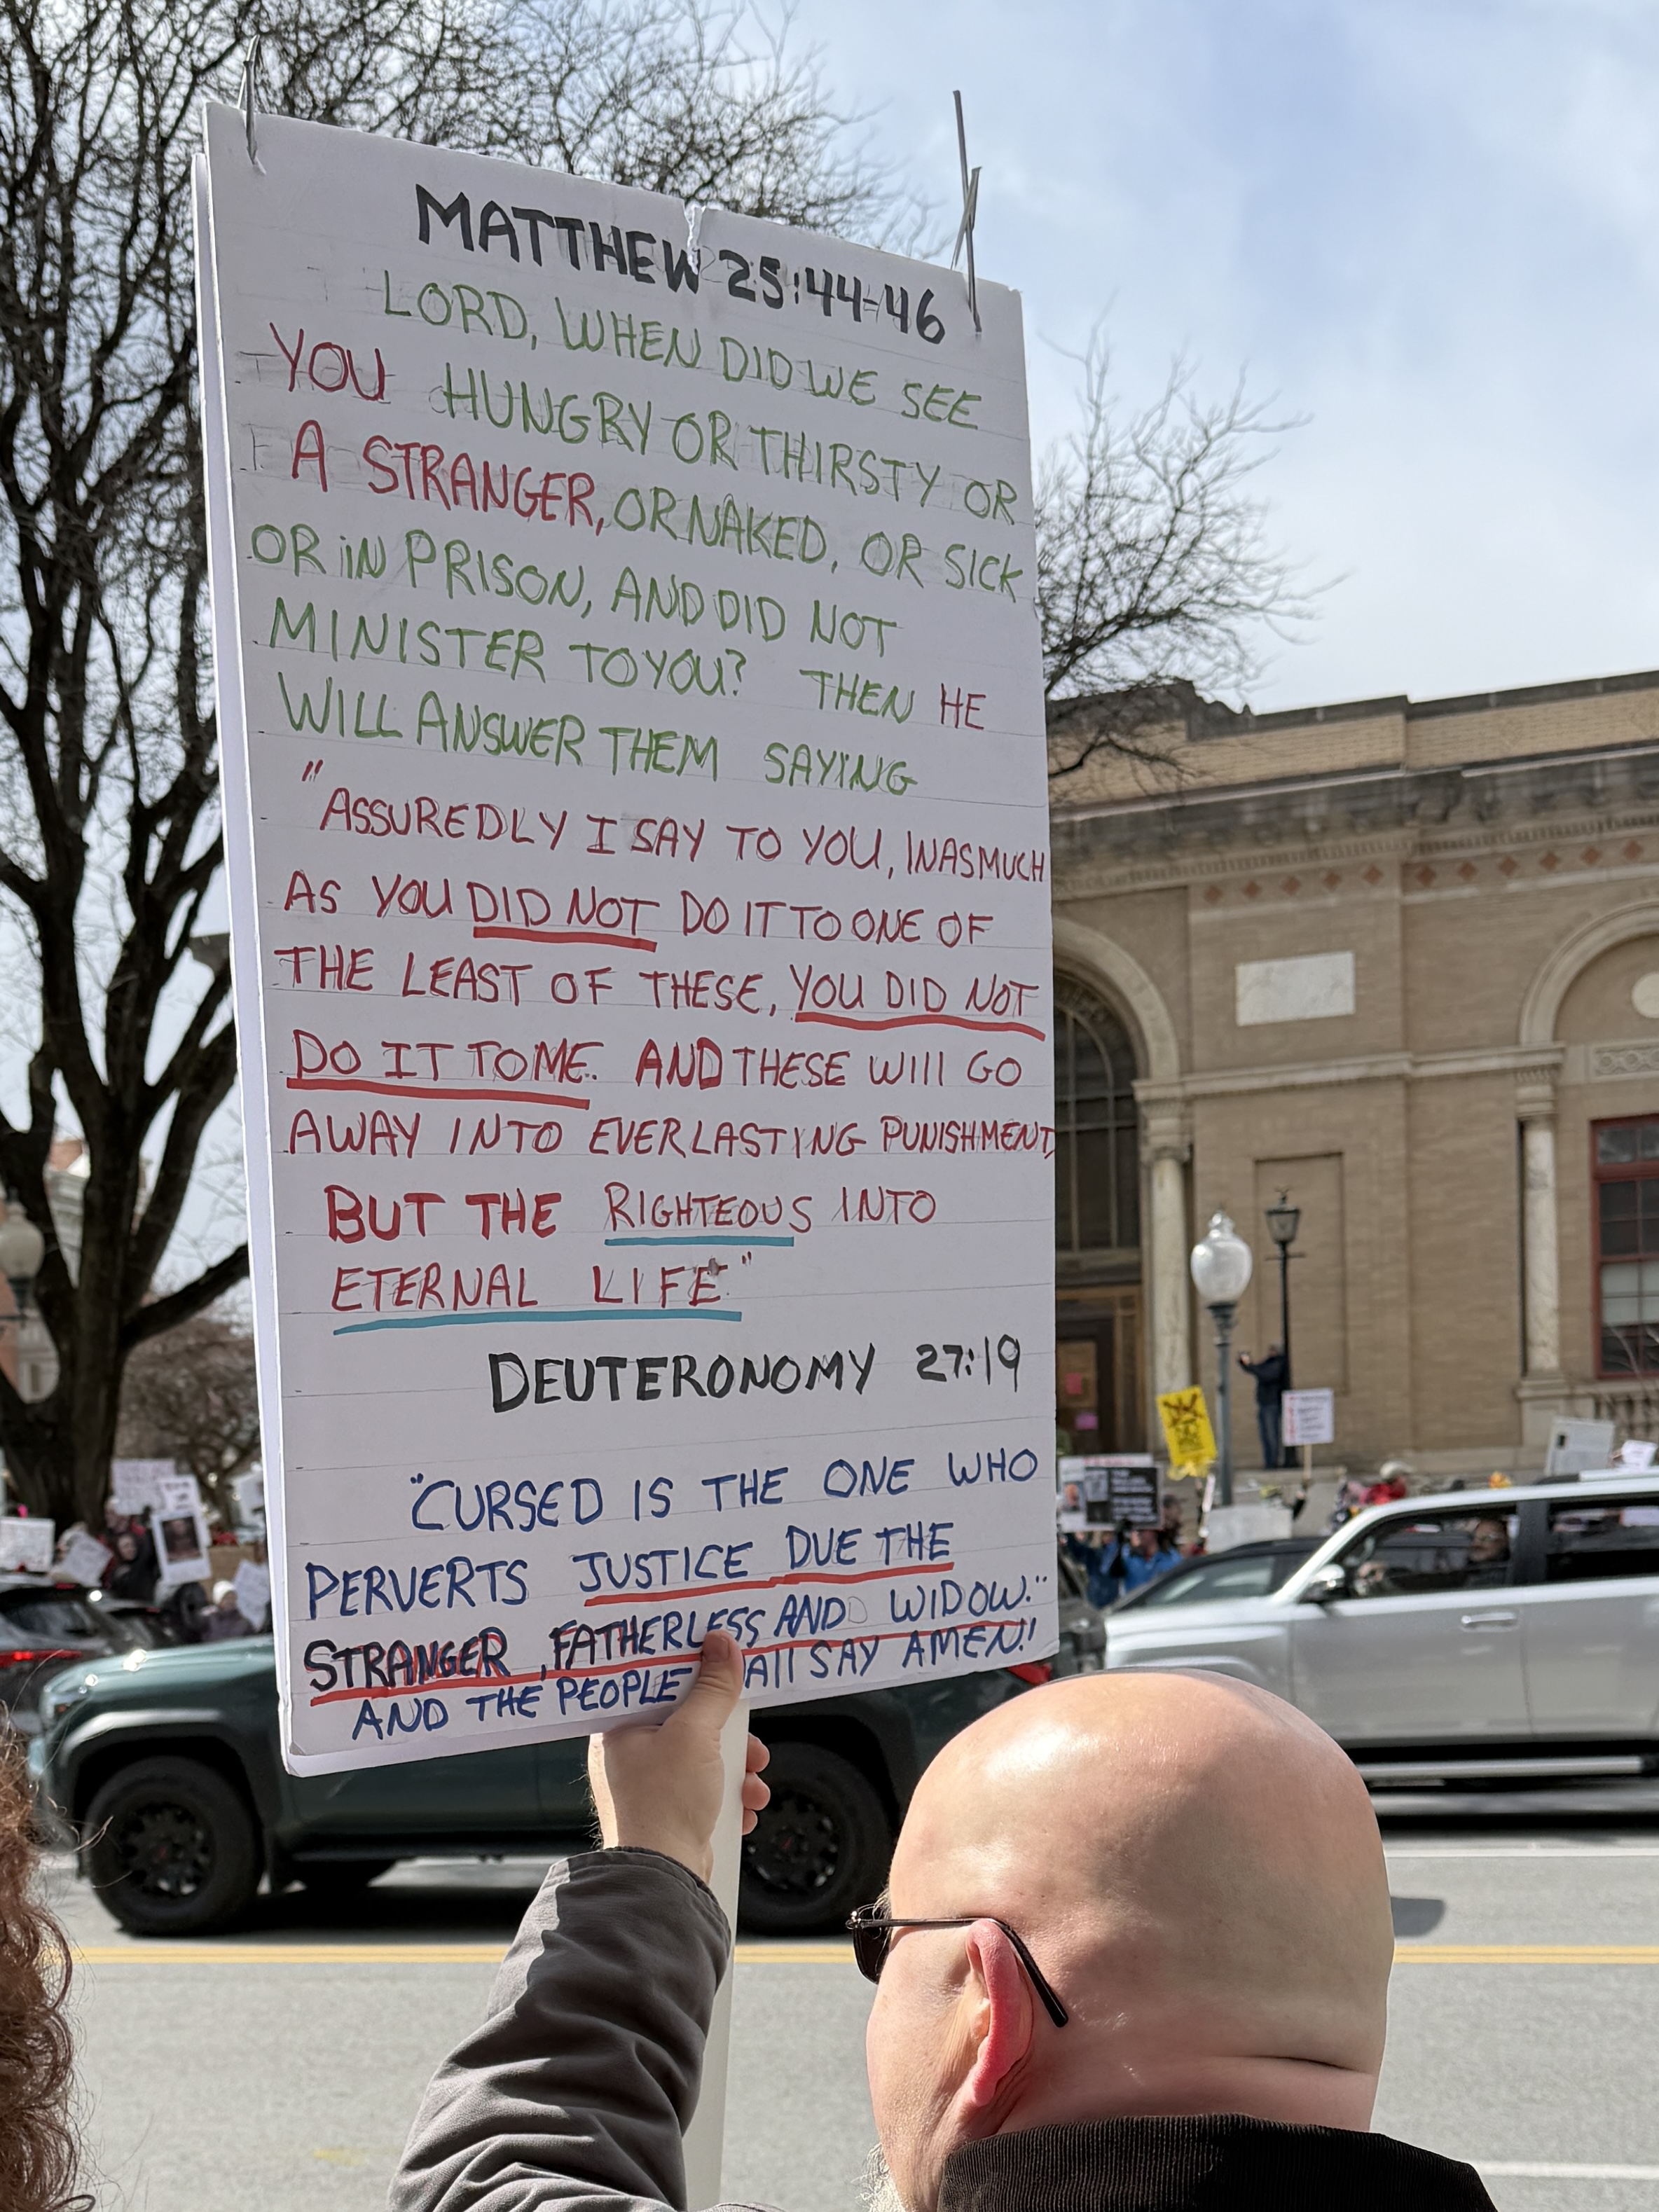 MATTHEW 25:44-46
LORD, WHEN DID WE SEE
YOU HUNGRY OR THIRSTY OR
A STRANGER, OR NAKED, OR SICK
OR iN PRISON, AND DID NOT
MINISTER TO YOU? THEN HE
WILL ANSWER THEM SAYING
"ASSUREDLY I SAY TO YOU, INASMUCH
AS YOU DID NOT DO IT TO ONE OF
THE LEAST OF THESE, YOU DID NOT
DO IT TO ME. AND THESE WIll GO
AWAY INTO EVERLASTING PUNISHMENT,
BUT THE RIGHTEOUS INTO
ETERNAL LIFE"
DEUTERONOMY 27:19
"CURSED IS THE ONE WHO
PERVERTS JUSTICE DUE THE
STRANGER, FATHERLESS AND WIDOW."
AND THE PEOPLE All SAY AMEN!!